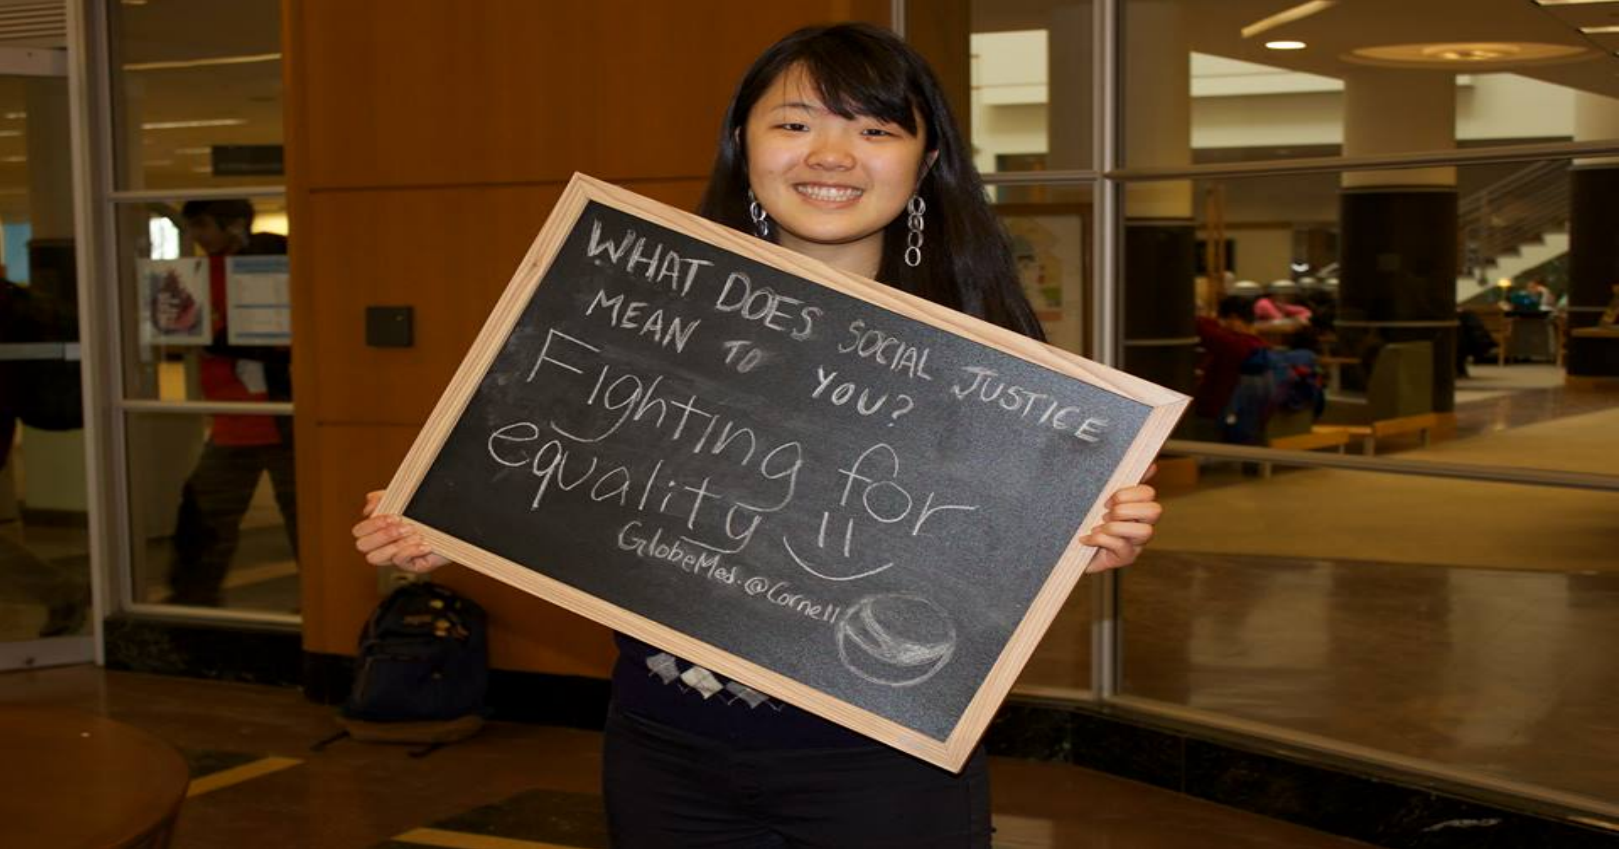 WHAT DOES SOCIAL JUSTICE
MEAN TO YOU?
Fighting for
equality
GlobeMed.@Cornell